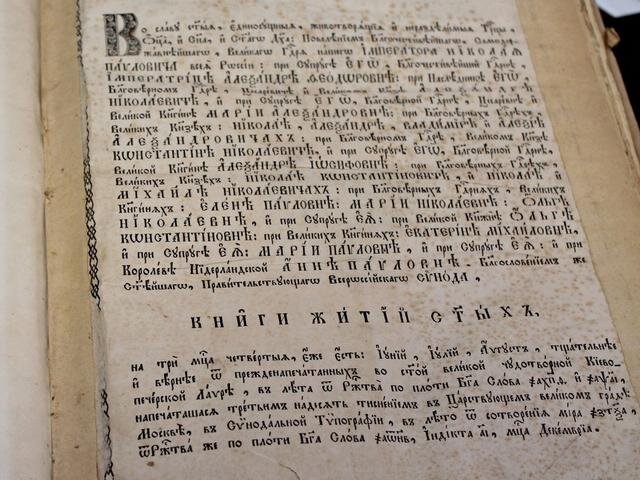 Во славу ст҃ыѧ, єдиносущныѧ, животворѧщїѧ и нераздѣлимыѧ Трⷪ҇цы,
Ѻц҃а, и Сн҃а, и Ст҃агѡ Дх҃а: Повелѣнїемъ Благочестивѣйшагѡ, Самодер-
жавнѣйшагѡ, Великагѡ Гдⷭ҇рѧ нашегѡ ІМПЕРАТОРА НІКОЛАѦ
ПАVЛОВИЧА всеѧ Рѡссїи: при Сꙋпрꙋгѣ ЄГѠ, Благочестивѣйшей Гдⷭ҇рнѣ,
ІМПЕРАТРИЦѢ АЛЕѮАНДРѢ ѲЕОДѠРОВНѢ: при Наслѣдникѣ ЄГѠ,
Благовѣрномъ Гдⷭ҇рѣ, Цесаревичѣ и Великомъ Кнѧзѣ АЛЕѮАНДРѢ
НІКОЛАЕВИЧѢ, и при Сꙋпрꙋгѣ ЄГѠ, Благовѣрной Гдⷭ҇рнѣ, Цесаревнѣ и
Великой Кнѧгинѣ МАРІИ АЛЕѮАНДРОВНѢ: при Благовѣрныхъ Гдⷭ҇рехъ,
Великихъ Кнѧзехъ: НІКОЛАѢ, АЛЕѮАНДРѢ, ВЛАДИМІРѢ и АЛЕѮІѢ
АЛЕѮАНДРОВИЧАХЪ: при Благовѣрномъ Гдⷭ҇рѣ, Великомъ Кнѧзѣ
КѠНСТАНТІНѢ НІКОЛАЕВИЧѢ, и при Сꙋпрꙋгѣ ЄГѠ, Благовѣрной Гдⷭ҇рнѣ,
Великой Кнѧгинѣ АЛЕѮАНДРѢ ІѠСИФОВНѢ: при Благовѣрныхъ Гдⷭ҇рехъ,
Великихъ Кнѧзехъ: НІКОЛАѢ КѠНСТАНТІНОВИЧѢ, и НІКОЛАѢ и
МІХАИЛѢ НІКОЛАЕВИЧАХЪ: при Благовѣрныхъ Гдⷭ҇рнѧхъ, Великихъ
Кнѧгинѧхъ: ЄЛЕНѢ ПАVЛОВНѢ: МАРІИ НІКОЛАЕВНѢ: ѺЛЬГѢ
НІКОЛАЕВНѢ, и при Сꙋпрꙋгѣ ЄѦ: при Великой Кнѧжнѣ ѺЛЬГѢ
КѠНСТАНТІНОВНѢ: при Великихъ Кнѧгинѧхъ: ЄКАТЕРІНѢ МІХАИЛОВНѢ,
и при Сꙋпрꙋгѣ ЄѦ: МАРІИ ПАVЛОВНѢ, и при Сꙋпрꙋгѣ ЄѦ: и при
Королевѣ Нїдерландской АННѢ ПАVЛОВНѢ. Благословенїемъ же
Ст҃ѣйшагѡ, Правительствꙋющагѡ Всерѡссійскагѡ СѴНОДА,
КНИГИ ЖИТІЙ СТ҃ЫХЪ,
на три мцⷭ҇а четвертыѧ, єже єсть: Іꙋній, Іꙋлій, Аѵгꙋстъ, тщательнѣе
и вѣрнѣе ѿ прежденапечатанныхъ во ст҃ой великой чꙋдотворной Кїево-
печерской Лаѵрѣ, въ лѣта ѿ Ржⷭ҇тва по плоти Бг҃а Слова и
напечаташасѧ третьимъ надесѧть тисненїемъ въ Царствꙋющемъ великомъ градѣ
Москвѣ, въ Сѵнодальной Тѵпографїи, въ лѣто ѿ сотворенїѧ мїра
ѿ Ржⷭ҇тва же по плоти Бг҃а Слова Індїкта аі, мцⷭ҇а Декемврїа.